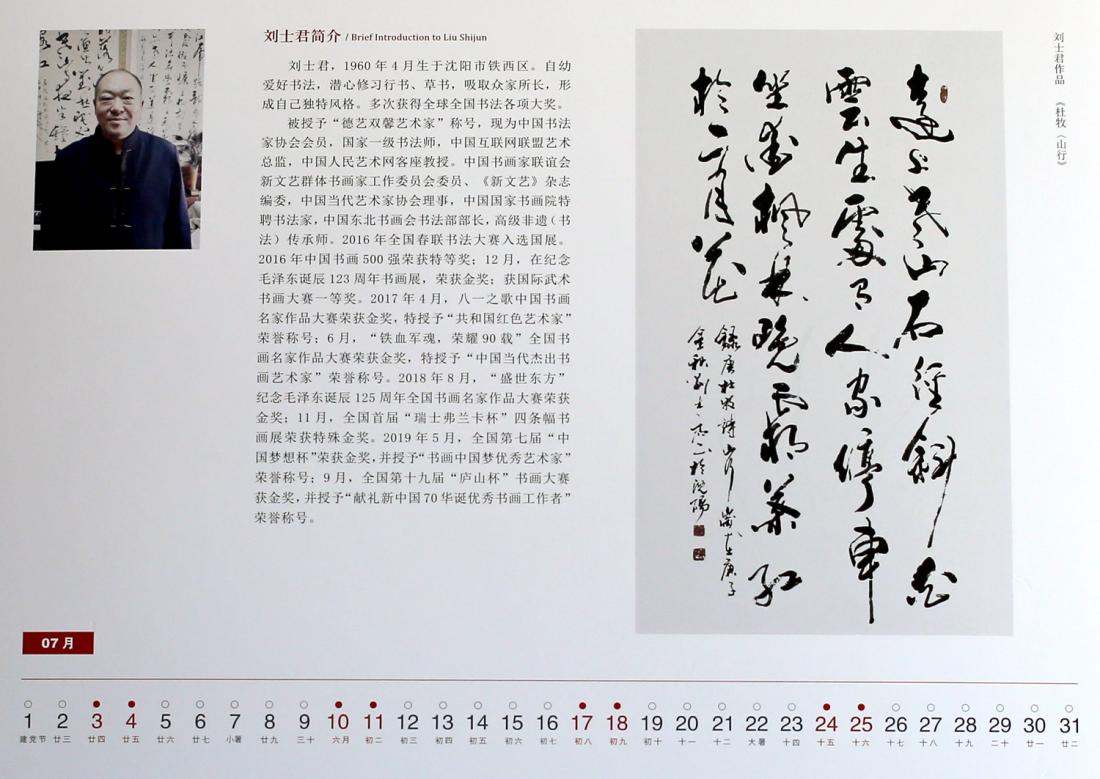 刘士君简介 / Brief Introduction to Liu Shijun
刘士君，1960 年 4 月生于沈阳市铁西区。自幼
爱好书法，潜心修习行书、草书，吸取众家所长，形
成自己独特风格。多次获得全球全国书法各项大奖。
被授予“德艺双馨艺术家”称号，现为中国书法
家协会会员，国家一级书法师，中国互联网联盟艺术
总监，中国人民艺术网客座教授。中国书画家联谊会
新文艺群体书画家工作委员会委员、《新文艺》杂志
编委，中国当代艺术家协会理事，中国国家书画院特
聘书法家，中国东北书画会书法部部长，高级非遗（书
法）传承师。2016 年全国春联书法大赛入选国展。
2016 年中国书画 500 强荣获特等奖；12 月，在纪念
毛泽东诞辰 123 周年书画展，荣获金奖；获国际武术
书画大赛一等奖。2017 年 4 月，八一之歌中国书画
名家作品大赛荣获金奖，特授予“共和国红色艺术家”
荣誉称号；6 月，“铁血军魂，荣耀 90 载”全国书
画名家作品大赛荣获金奖，特授予“中国当代杰出书
画艺术家”荣誉称号。2018 年 8 月，“盛世东方”
纪念毛泽东诞辰 125 周年全国书画名家作品大赛荣获
金奖；11 月，全国首届“瑞士弗兰卡杯”四条幅书
画展荣获特殊金奖。2019 年 5 月，全国第七届“中
国梦想杯”荣获金奖，并授予“书画中国梦优秀艺术家”
荣誉称号；9 月，全国第十九届“庐山杯”书画大赛
获金奖，并授予“献礼新中国 70 华诞优秀书画工作者”
荣誉称号。
刘士君作品 《杜牧〈山行〉》
遠上寒山石徑斜白
雲生處有人家停車
坐愛楓林晚霜葉紅
於二月花
錄唐杜牧詩山行歲在庚子
金秋劉士君於瀋陽
07 月
1 2 3 4 5 6 7 8 9 10 11 12 13 14 15 16 17 18 19 20 21 22 23 24 25 26 27 28 29 30 31
建党节 廿三 廿四 廿五 廿六 廿七 小暑 廿九 三十 六月 初二 初三 初四 初五 初六 初七 初八 初九 初十 十一 十二 大暑 十四 十五 十六 十七 十八 十九 二十 廿一 廿二